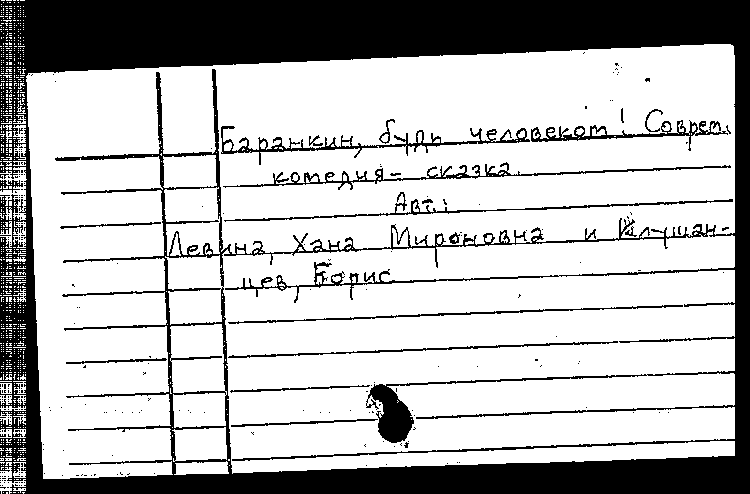 Баранкин, будь человеком! Соврем.
комедия-сказка.
Авт.:
Левина, Хана Мироновна и Клушан-
цев, Борис